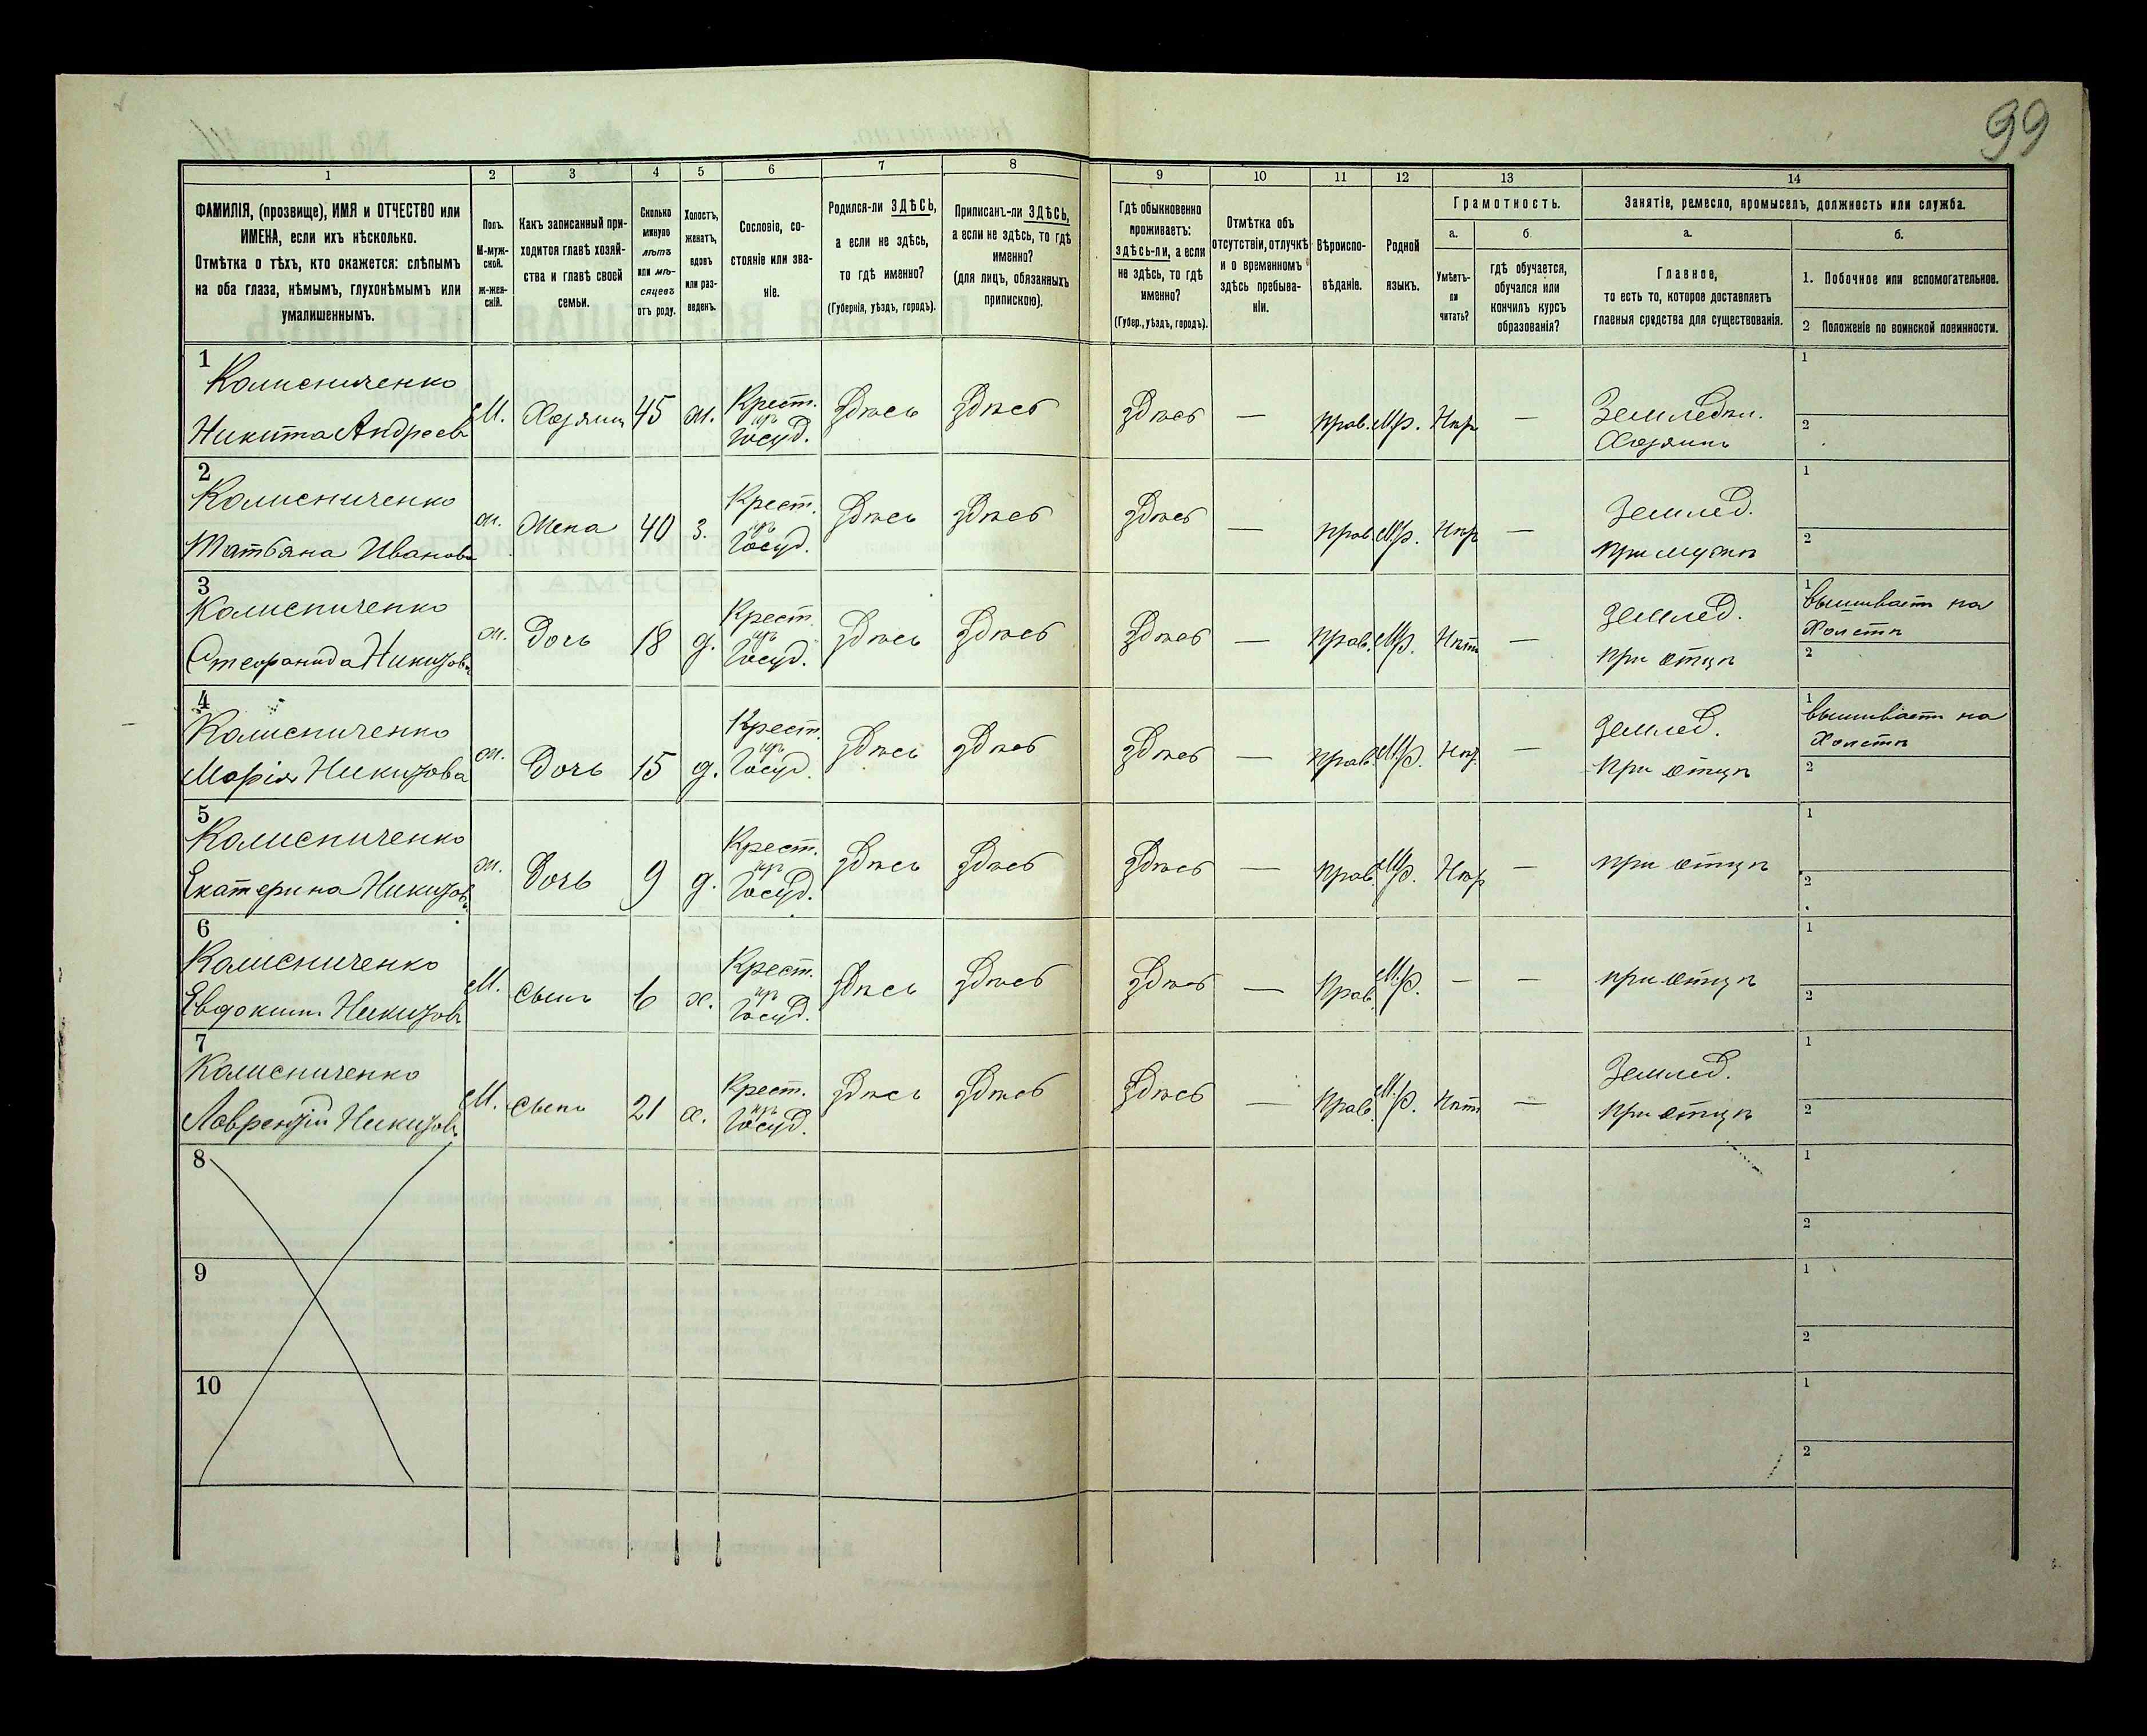 99
1
2
3
4
5
6
7
8
9
10
11
12
13
14
ФАМИЛІЯ, (прозвище), ИМЯ и ОТЧЕСТВО или
ИМЕНА, если ихъ нѣсколько.
Отмѣтка о тѣхъ, кто окажется: слѣпымъ
на оба глаза, нѣмымъ, глухонѣмымъ или
умалишеннымъ.
Полъ.
М-муж-
ской.
Ж-жен-
скій.
Какъ записанный при-
ходится главѣ хозяй-
ства и главѣ своей
семьи.
Сколько
минуло
лѣтъ
или мѣ-
сяцевъ
отъ роду.
Холостъ,
женатъ,
вдовъ
или раз-
веденъ.
Сословіе, со-
стояніе или зва-
ніе.
Родился-ли ЗДѢСЬ,
а если не здѣсь,
то гдѣ именно?
(Губернія, уѣздъ, городъ).
Приписанъ-ли ЗДѢСЬ,
а если не здѣсь, то гдѣ
именно?
(для лицъ, обязанныхъ
припискою).
Гдѣ обыкновенно
проживаетъ:
здѣсь-ли, а если
не здѣсь, то гдѣ
именно?
(Губер., уѣздъ, городъ).
Отмѣтка объ
отсутствіи, отлучкѣ
и о временномъ
здѣсь пребыва-
ніи.
Вѣроиспо-
вѣданіе.
Родной
языкъ.
Грамотность.
а.
Умѣетъ-
ли
читать?
б.
гдѣ обучается,
обучался или
кончилъ курсъ
образованія?
Занятіе, ремесло, промыселъ, должность или служба.
а.
Главное,
то есть то, которое доставляетъ
главныя средства для существованія.
б.
1. Побочное или вспомогательное.
2 Положеніе по воинской повинности.
1
Колисниченко
Никита Андреевъ
М. Хозяинъ 45 ж. Крест.
изъ
Госуд.
Здѣсь Здѣсь Здѣсь — Прав. М.р. Нѣт —
Земледѣл.
Хозяинъ
1
2
2
Колисниченко
Татьяна Иванова
ж. Жена 40 з. Крест.
изъ
Госуд.
Здѣсь Здѣсь Здѣсь — Прав. М.р. Нѣт —
Землед.
при мужѣ
1
2
3
Колисниченко
Стефанида Никитова
ж. Дочь 18 д. Крест.
изъ
Госуд.
Здѣсь Здѣсь Здѣсь — Прав. М.р. Нѣт —
Землед.
при отцѣ
1
вышиваетъ на
Холстѣ
2
4
Колисниченко
Марія Никитова
ж. Дочь 15 д. Крест.
изъ
Госуд.
Здѣсь Здѣсь Здѣсь — Прав. М.р. Нѣт —
Землед.
при отцѣ
1
вышиваетъ на
Холстѣ
2
5
Колисниченко
Екатерина Никитова
ж. Дочь 9 д. Крест.
изъ
Госуд.
Здѣсь Здѣсь Здѣсь — Прав. М.р. Нѣт —
при отцѣ
1
2
6
Колисниченко
Евдокимъ Никитовъ
М. сынъ 6 х. Крест.
изъ
Госуд.
Здѣсь Здѣсь Здѣсь — Прав. М.р. — —
при отцѣ
1
2
7
Колисниченко
Лаврентій Никитовъ
М. сынъ 21 х. Крест.
изъ
Госуд.
Здѣсь Здѣсь Здѣсь — Прав. М.р. Нѣт —
Землед.
при отцѣ
2
8
1
2
9
1
2
10
1
2